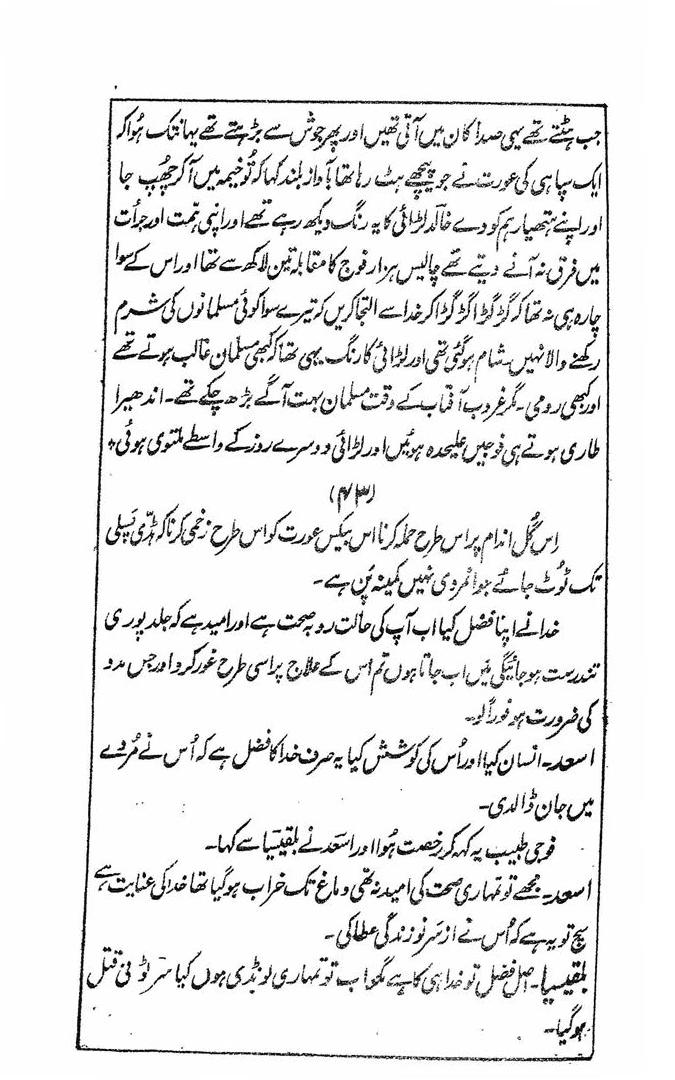 جب ہٹتے تھے یہی صدا کان میں آتی تھیں اور پھر جوش سے بڑہتے تھے یہانتک ہُوا کہ
ایک سپاہی کی عورت نے جو پیچھے ہٹ رہا تھا بآواز بلند کہا کہ تُو خیمہ میں آکر چھُپ جا
اور اپنے ہتھیار ہم کو دے خالد لڑائی کا یہ رنگ دیکھ رہے تھے اور اپنی ہمت اور جرأت
میں فرق نہ آنے دیتے تھے چالیس ہزار فوج کا مقابلہ تین لاکھ سے تھا اور اس کے سوا
چارہ ہی نہ تھا کہ گڑ گڑا گڑ گڑا کر خدا سے التجا کریں کہ تیرے سوا کوئی مسلمانوں کی شرم
رکھنے والا نہیں۔ شام ہو گئی تھی اور لڑائی کا رنگ یہی تھا کہ کبھی مسلمان غالب ہوتے تھے
اور کبھی رومی۔ مگر غروب آفتاب کے وقت مسلمان بہت آگے بڑھ چکے تھے۔ اندھیرا
طاری ہوتے ہی فوجیں علیحدہ ہوئیں اور لڑائی دوسرے روز کے واسطے ملتوی ہوئی٭
(۴۳)
اِس گُل اندام پر اس طرح حملہ کرنا اس بیکس عورت کو اس طرح زخمی کرنا کہ ہڈی پسلی
تک ٹوٹ جائے جوانمردی نہیں کمینہ پَن ہے۔
خدا نے اپنا فضل کیا اب آپ کی حالت رو بہ صحت ہے اور امید ہے کہ جلد پوری
تندرست ہو جائیگی مَیں اب جاتا ہوں تم اس کے علاج پر اسی طرح غور کرو اور جس مدد
کی ضرورت ہو فوراً لو۔
اسعد۔ انسان کیا اور اُس کی کوشش کیا یہ صرف خدا کا فضل ہے کہ اُس نے مُردے
میں جان ڈالدی۔
فوجی طبیب یہ کہہ کر رخصت ہُوا اور اسعد نے بلقیسیا سے کہا۔
اسعد۔ مجھے تو تمہاری صحت کی امید نہ تھی دماغ تک خراب ہو گیا تھا خدا کی عنایت ہے
سچ تو یہ ہے کہ اُس نے از سرِ نو زندگی عطا کی۔
بلقیسیا۔ اصل فضل تو خدا ہی کا ہے مگر اب تو تمہاری لونڈی ہوں کیا سر لوئی قتل
ہو گیا۔